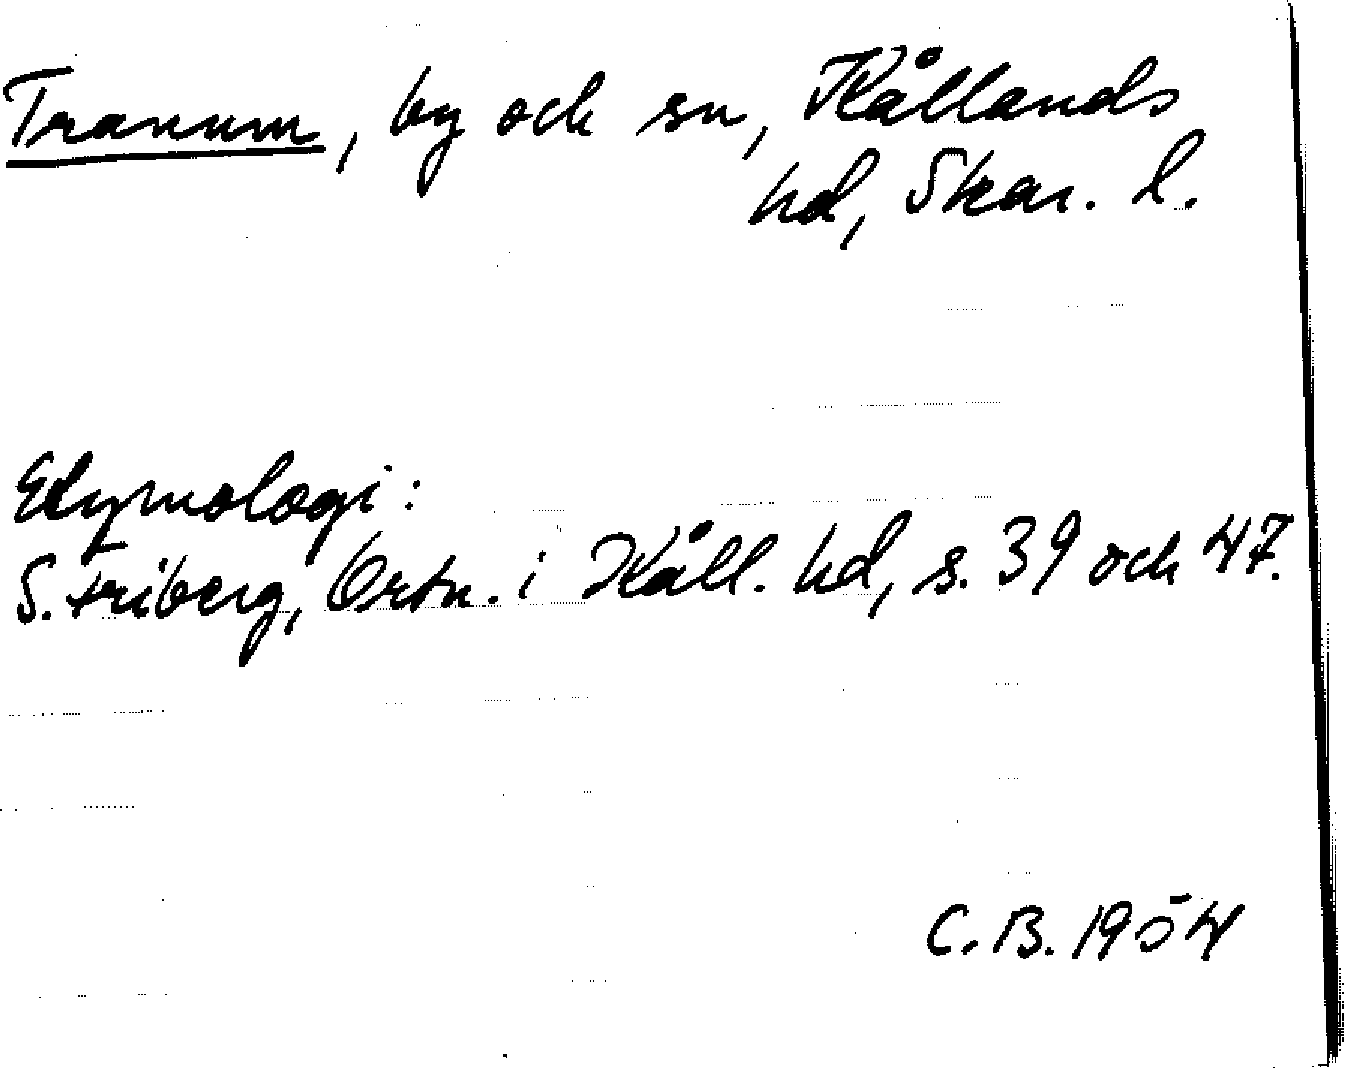 Tranum, by och sn, Kållands
hd, Skar. l.
Etymologi:
S. Friberg, Ortn. i Kåll. hd, s. 39 och 47.
C. B. 1954